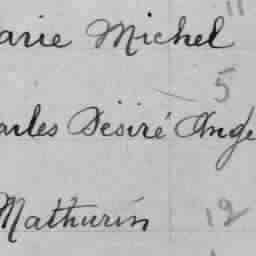 11
arie Michel
5
arles Désiré Ange
Mathurin 12